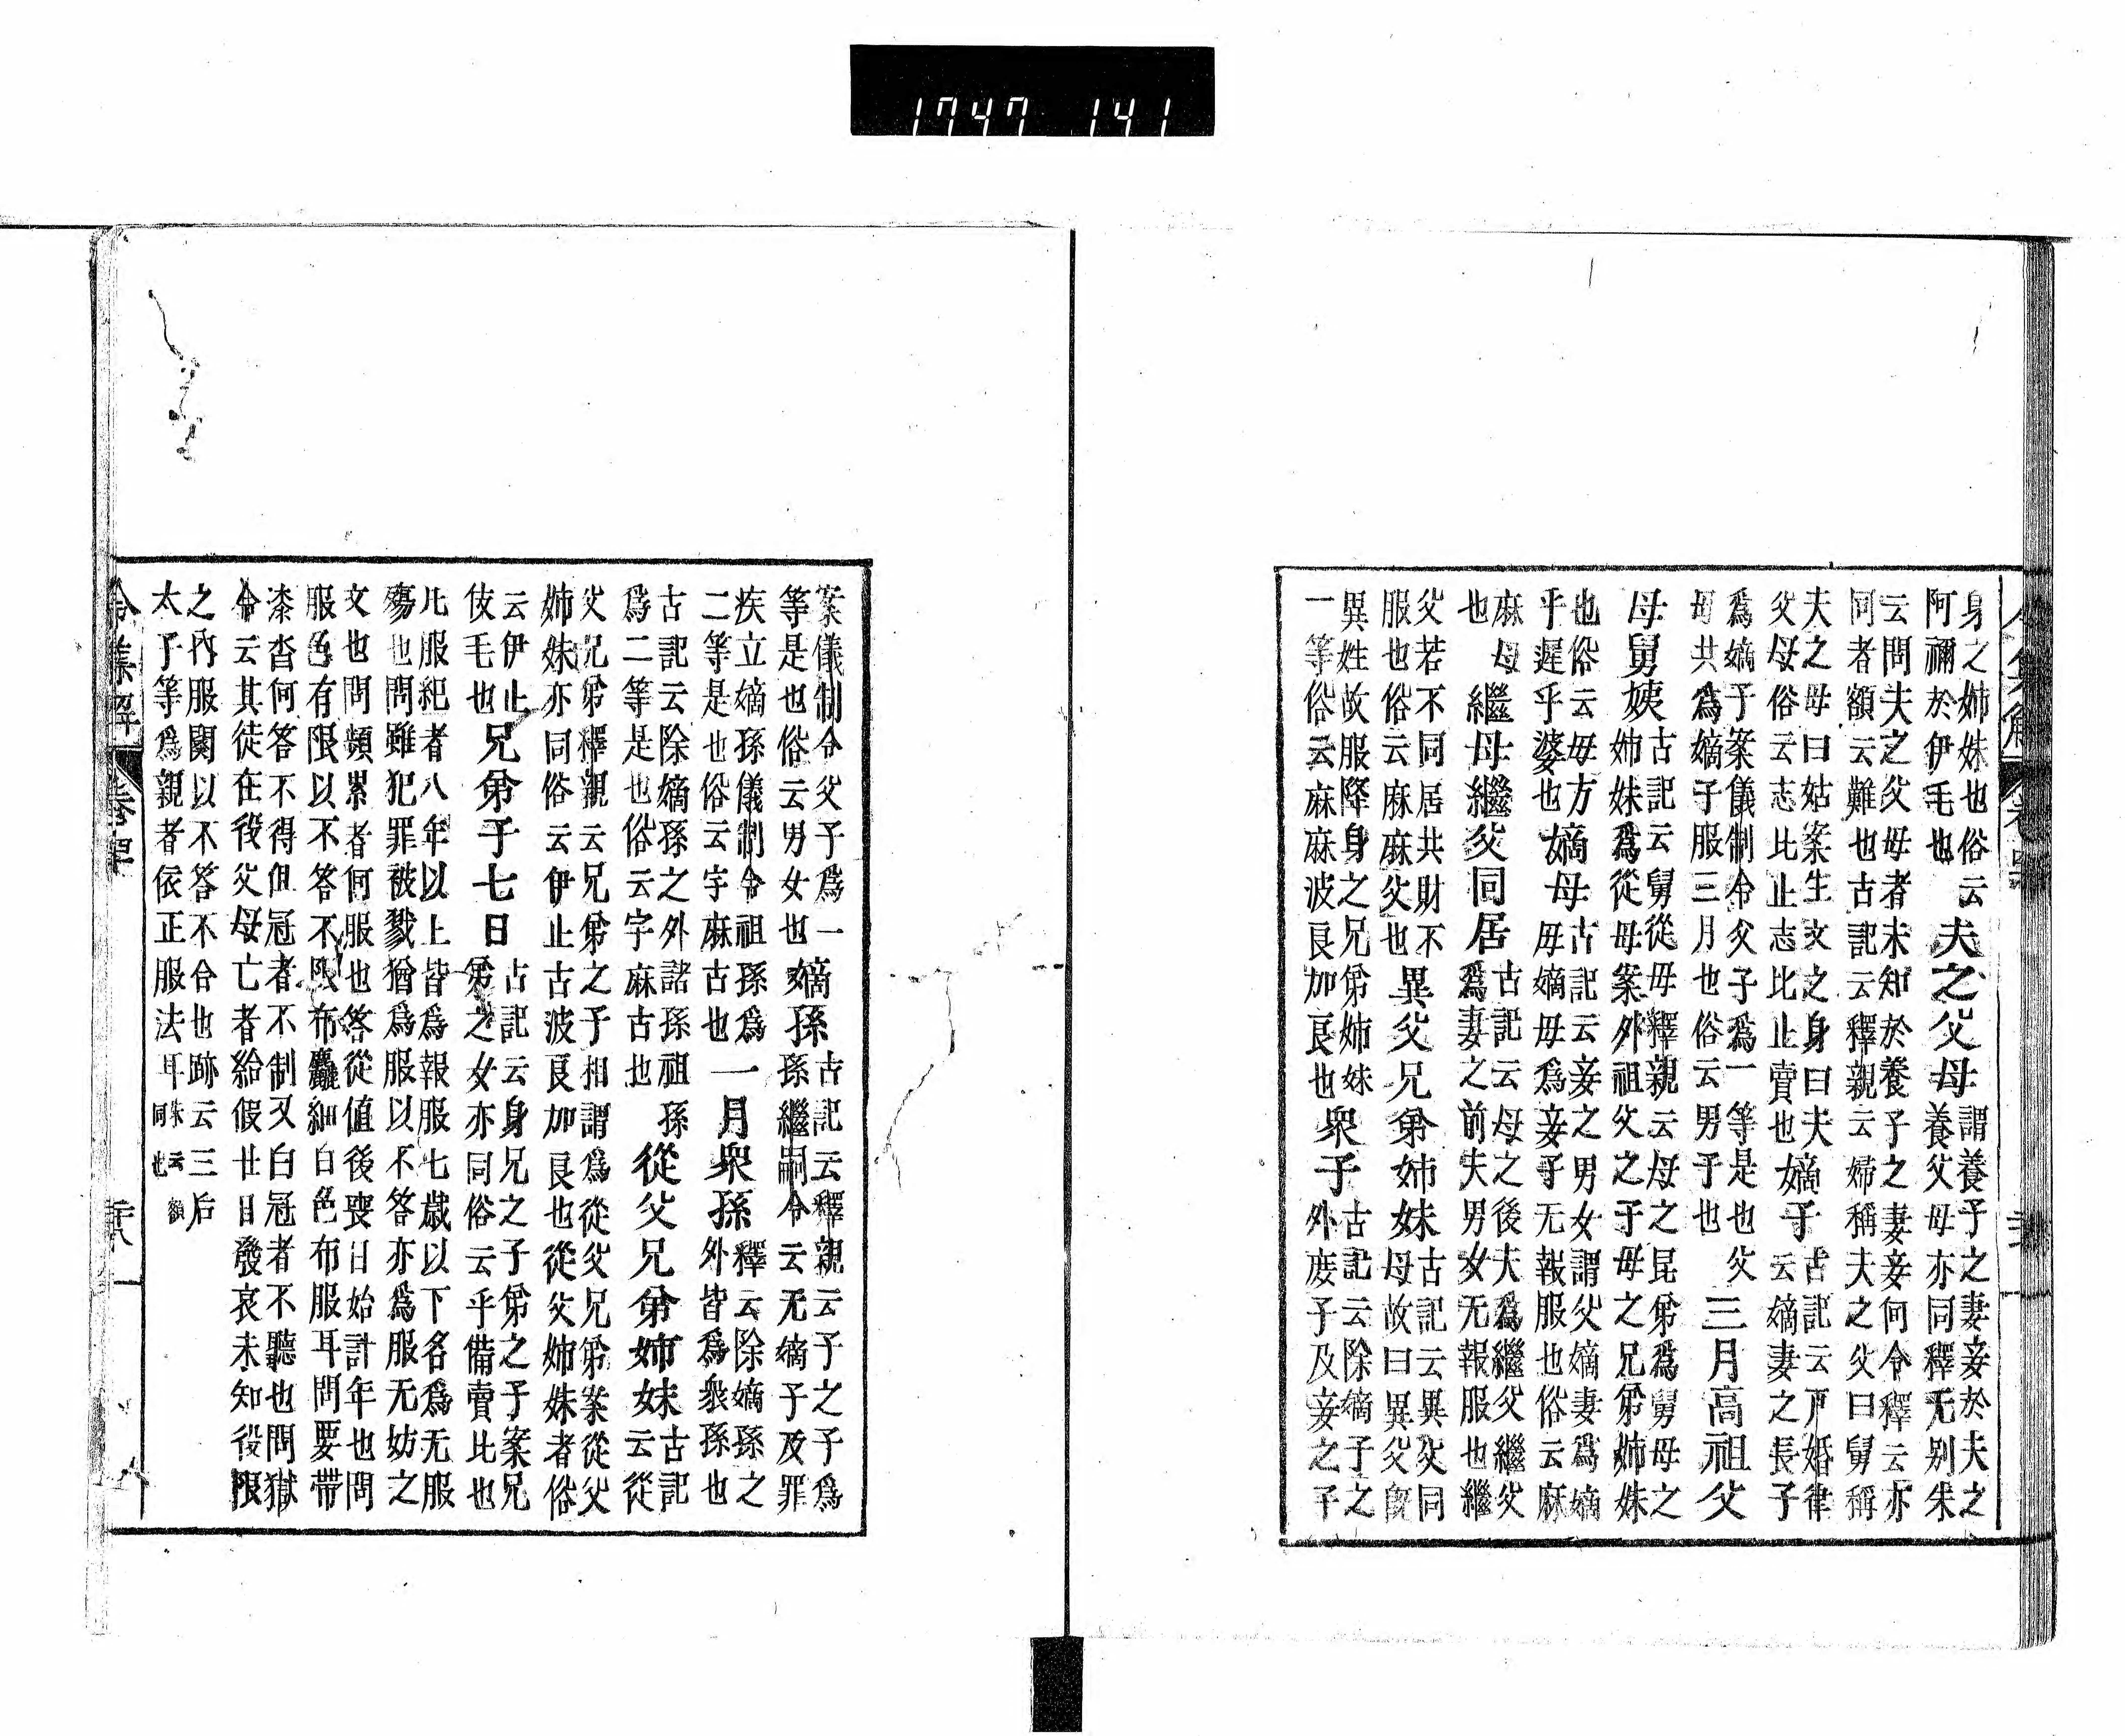 令集解 卷
身之姉妹也俗云
阿禰於伊毛也
夫之父母
謂養子之妻妾於夫之
養父母亦同釋无別朱
云問夫之父母者未知於養子之妻妾何令釋云亦
同者額云難也古記云釋親云婦稱夫之父曰舅稱
夫之母曰姑案生文之身曰夫
父母俗云志比止志比止賣也
嫡子
古記云戸婚律
云嫡妻之長子
爲嫡子案儀制令父子爲一等是也父
母共爲嫡子服三月也俗云男子也
三月高祖父
母舅姨
古記云舅從母釋親云母之昆弟爲舅母之
姉妹爲從母案外祖父之子母之兄弟姉妹
也俗云母方
乎遅乎婆也
嫡母
古記云妾之男女謂父嫡妻爲嫡
母嫡母爲妾子无報服也俗云麻
麻母
也
繼母繼父同居
古記云母之後夫爲繼父繼父
爲妻之前夫男女无報服也繼
父若不同居共財不
服也俗云麻麻父也
異父兄弟姉妹
古記云異父同
母故曰異父既
異姓故服降身之兄弟姉妹
一等俗云麻麻波良加良也
衆子
古記云除嫡子之
外庶子及妾之子
案儀制令父子爲一
等是也俗云男女也
嫡孫
古記云釋親云子之子爲
孫繼嗣令云无嫡子及罪
疾立嫡孫儀制令祖孫爲
二等是也俗云宇麻古也
一月衆孫
釋云除嫡孫之
外皆爲衆孫也
古記云除嫡孫之外諸孫祖孫
爲二等是也俗云宇麻古也
從父兄弟姉妹
古記
云從
父兄弟釋親云兄弟之子相謂爲從父兄弟案從父
姉妹亦同俗云伊止古波良加良也從父姉妹者俗
云伊止
伎毛也
兄弟子七日
古記云身兄之子弟之子案兄
弟之女亦同俗云乎備賣比也
凡服紀者八年以上皆爲報服七歳以下名爲无服
殤也問雖犯罪被戮猶爲服以不答亦爲服无妨之
文也問頻累者何服也答從値後喪日始計年也問
服色有限以不答不限布麤細白色布服耳問要帶
漆沓何答不得但冠者不制又白冠者不聽也問獄
令云其徒在役父母亡者給假廿日發哀未知役限
之內服闋以不答不合也跡云三后
太子等爲親者依正服法耳
朱云額
同也
令集解 卷